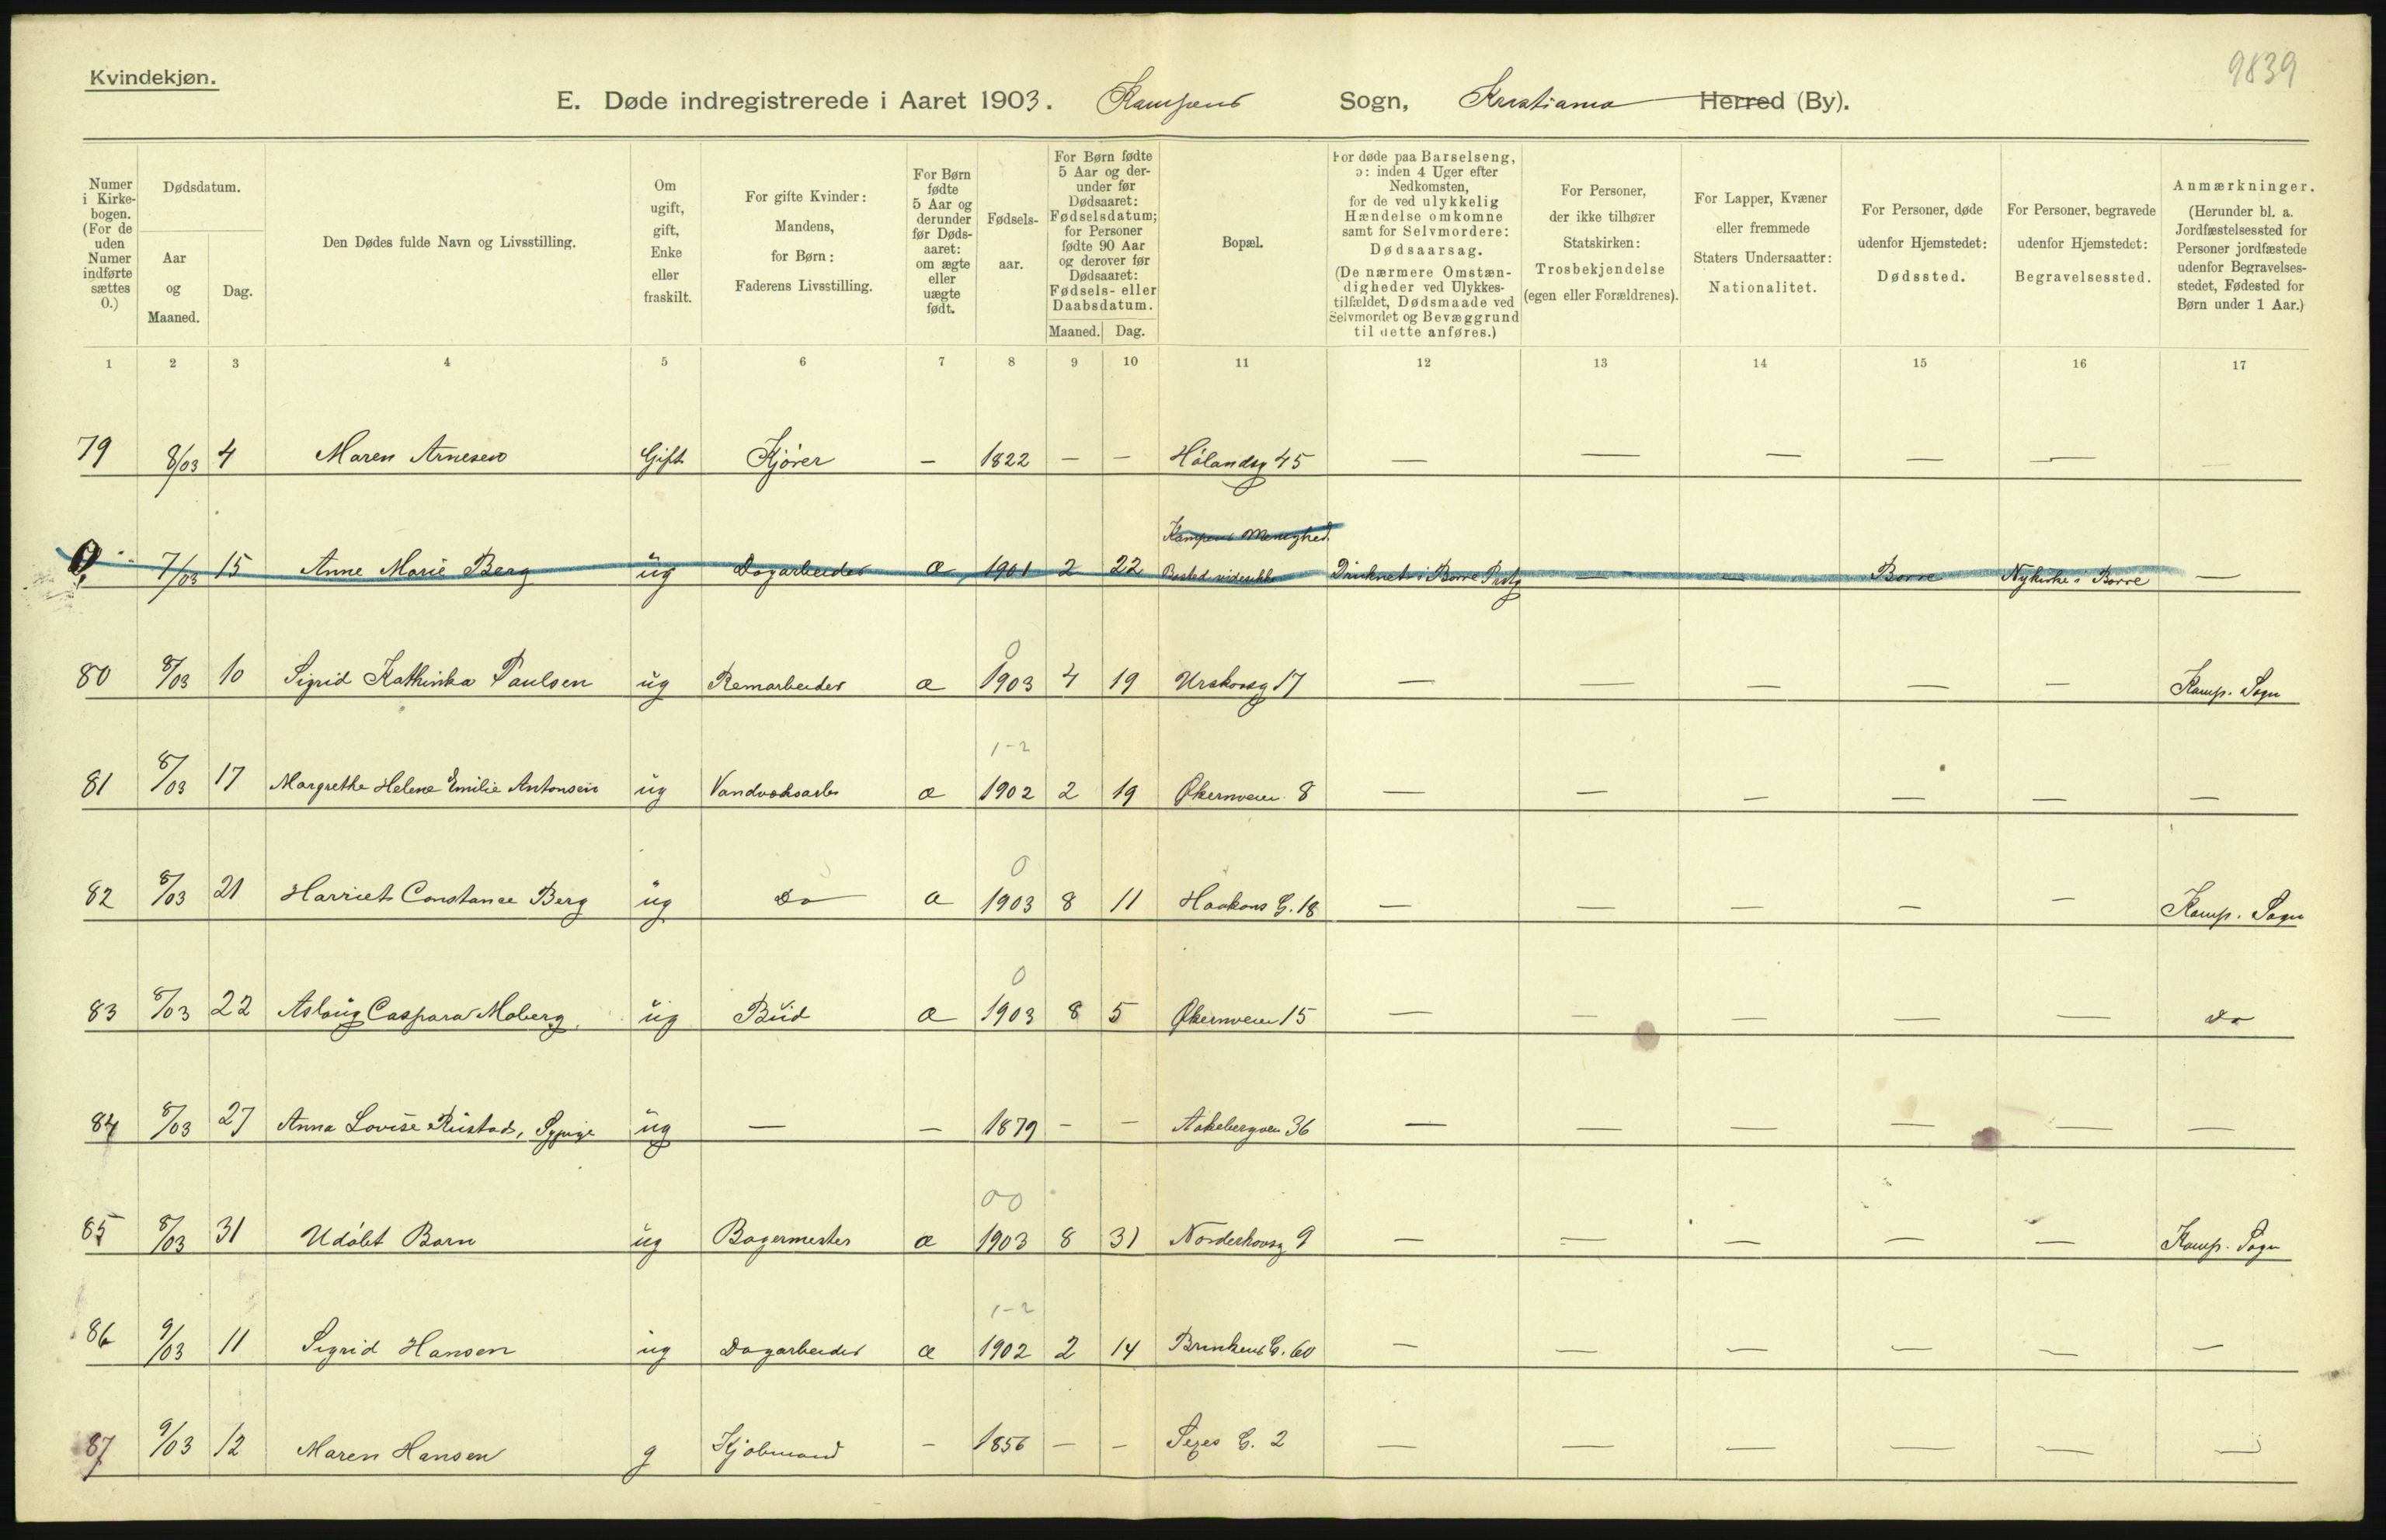 Kvindekjøn.
9839
E. Døde indregistrerede i Aaret 1903. Kampens Sogn, Kristiania Herred (By).
Numer i Kirkebogen. (For de uden Numer indførte sættes 0.)
Dødsdatum.
Aar og Maaned.
Dag.
Den Dødes fulde Navn og Livsstilling.
Om ugift, gift, Enke eller fraskilt.
For gifte Kvinder: Mandens, for Børn: Faderens Livsstilling.
For Børn fødte 5 Aar og derunder før Dødsaaret: om ægte eller uægte født.
Fødselsaar.
For Børn fødte 5 Aar og derunder før Dødsaaret: Fødselsdatum; for Personer fødte 90 Aar og derover før Dødsaaret: Fødsels- eller Daabsdatum.
Maaned. Dag.
Bopæl.
For døde paa Barselseng, ɔ: inden 4 Uger efter Nedkomsten, for de ved ulykkelig Hændelse omkomne samt for Selvmordere: Dødsaarsag. (De nærmere Omstændigheder ved Ulykkestilfældet, Dødsmaade ved Selvmordet og Bevæggrund til dette anføres.)
For Personer, der ikke tilhører Statskirken: Trosbekjendelse (egen eller Forældrenes).
For Lapper, Kvæner eller fremmede Staters Undersaatter: Nationalitet.
For Personer, døde udenfor Hjemstedet: Dødssted.
For Personer, begravede udenfor Hjemstedet: Begravelsessted.
Anmærkninger. (Herunder bl. a. Jordfæstelsessted for Personer jordfæstede udenfor Begravelsesstedet, Fødested for Børn under 1 Aar.)
1 2 3 4 5 6 7 8 9 10 11 12 13 14 15 16 17
79 8/03 4 Maren Arnesen Gift Kjører — 1822 — — Hølandsg 45 — — — — — —
Kampens Menighed
0. 7/03 15 Anne Marie Berg ug Dagarbeider æ 1901 2 22 Bosted vides ikke Druknet i Borre Prstg — — Borre Nykirke i Borre —
0
80 8/03 10 Sigrid Kathinka Paulsen ug Remarbeider æ 1903 4 19 Urskovsg 17 — — — — — Kamp. Sogn
1-2
81 8/03 17 Margrethe Helene Emilie Antonsen ug Vandvæksarb æ 1902 2 19 Økernveien 8 — — — — — —
0
82 8/03 21 Harriet Constance Berg ug Do æ 1903 8 11 Haakons G. 18 — — — — — Kamp. Sogn
0
83 8/03 22 Aslaug Caspara Moberg ug Bud æ 1903 8 5 Økernveien 15 — — — — — Do
84 8/03 27 Anna Lovise Rustad, Sypige ug — — 1879 — — Aakebergven 36 — — — — — —
00
85 8/03 31 Udøbt Barn ug Bagermester æ 1903 8 31 Norderhovsg 9 — — — — — Kamp. Sogn
1-2
86 9/03 11 Sigrid Hansen ug Dagarbeider æ 1902 2 14 Brinkens G. 60 — — — — — —
87 9/03 12 Maren Hansen g Kjøbmand — 1856 — — G. 2 — — — — — —